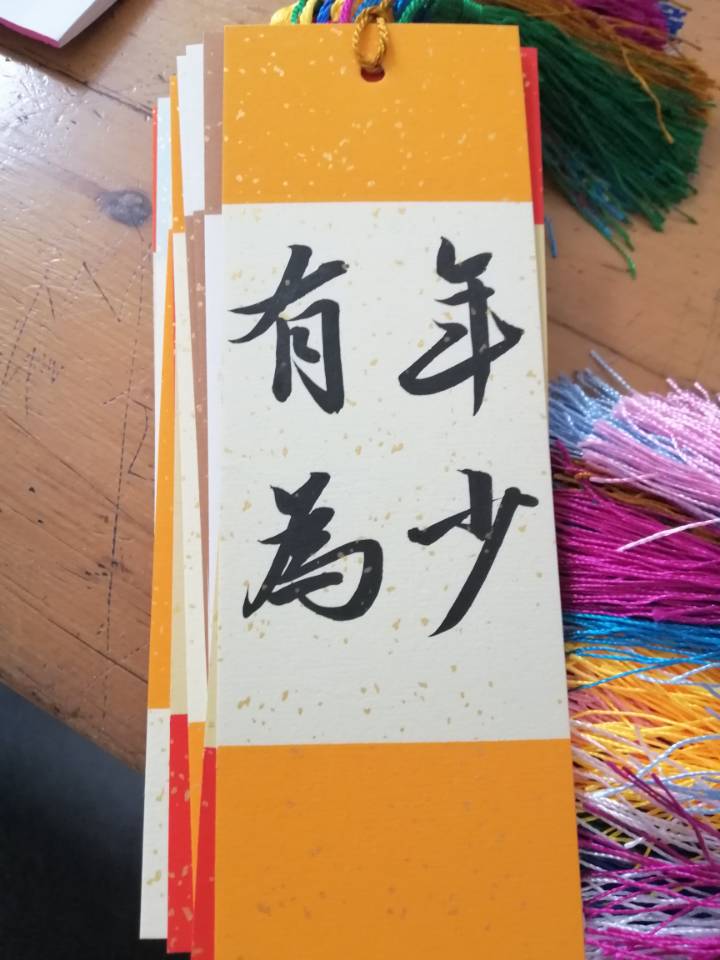 年少
有為